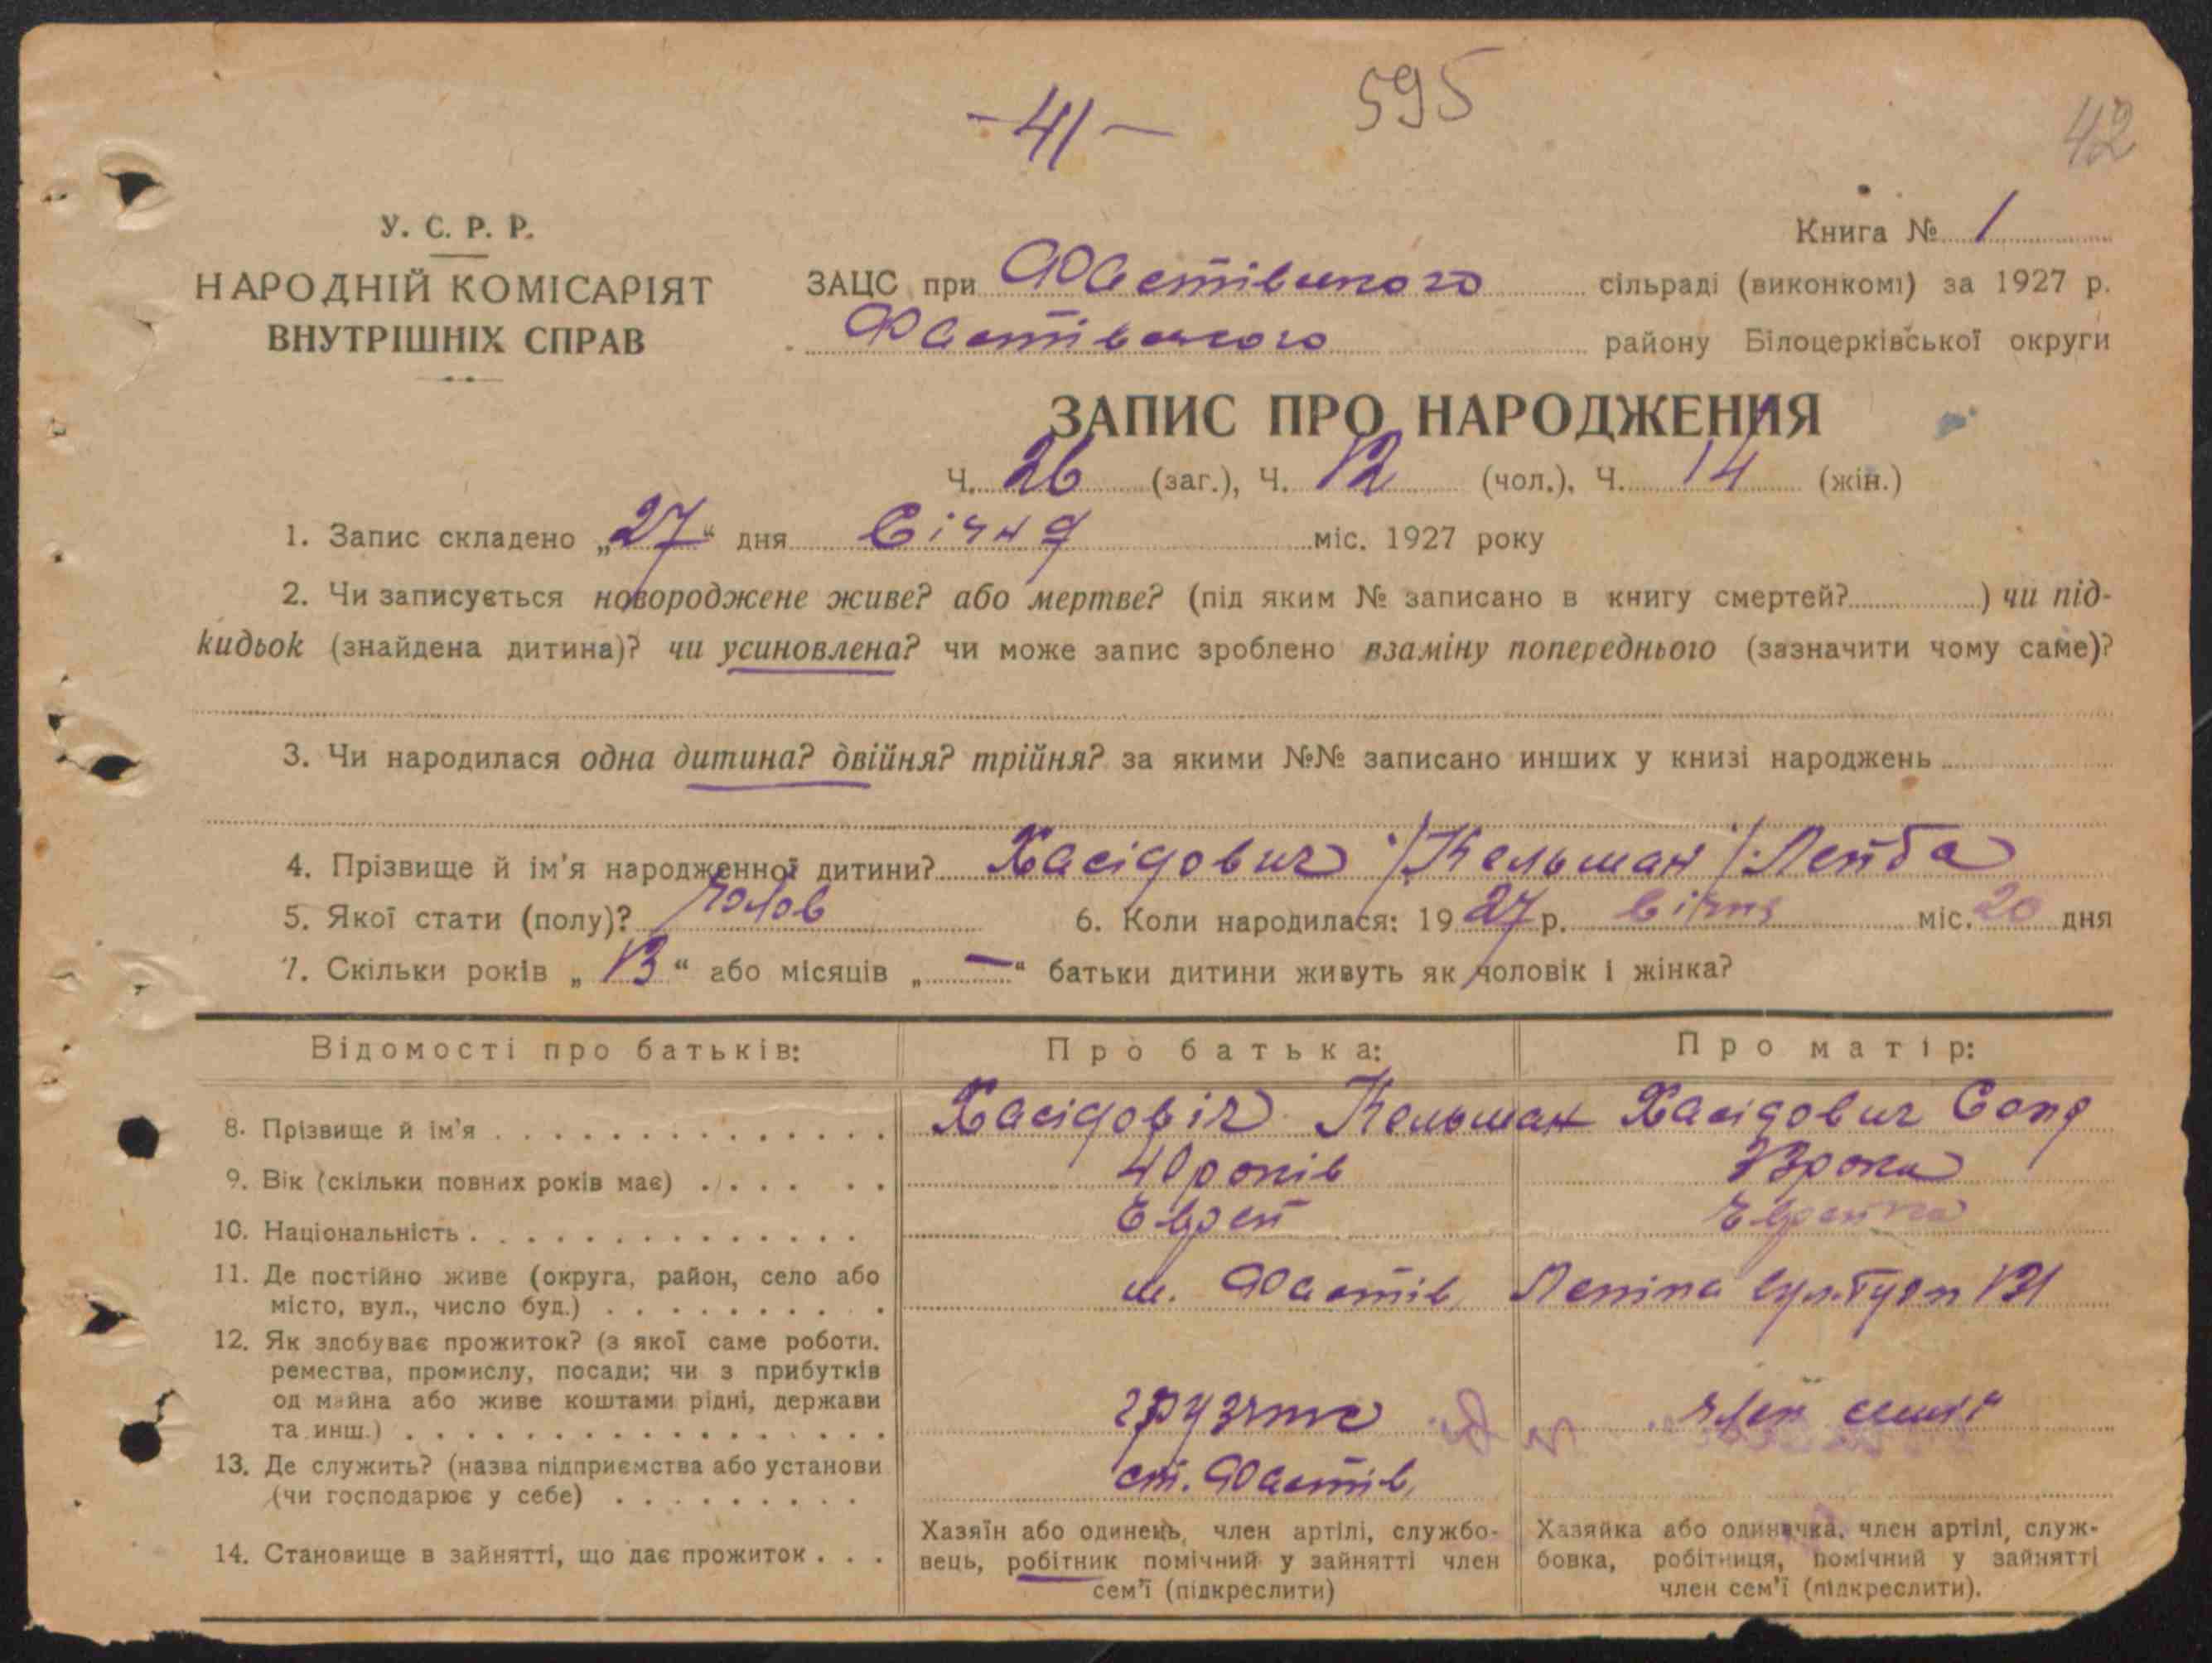 -41-
595
42
У. С. Р. Р.
НАРОДНІЙ КОМІСАРІЯТ
ВНУТРІШНІХ СПРАВ
Книга № 1
ЗАЦС при Фастівського сільраді (виконкомі) за 1927 р.
Фастівського району Білоцерківської округи
ЗАПИС ПРО НАРОДЖЕННЯ
Ч. 26 (заг.), Ч. 12 (чол.), Ч. 14 (жін.)
1. Запис складено „27“ дня Січня міс. 1927 року
2. Чи записується новороджене живе? або мертве? (під яким № записано в книгу смертей?) чи під-
кидьок (знайдена дитина)? чи усиновлена? чи може запис зроблено взаміну попереднього (зазначити чому саме)?
3. Чи народилася одна дитина? двійня? трійня? за якими №№ записано инших у книзі народжень
4. Прізвище й ім'я народженної дитини? Хасідович /Кельман/ Лейба
5. Якої стати (полу)? Чолов 6. Коли народилася: 1927 р. Січня міс. 20 дня
7. Скільки років „13“ або місяців „—“ батьки дитини живуть як чоловік і жінка?
Відомості про батьків:
Про батька:
Про матір:
8. Прізвище й ім'я
Хасідовіч Кельман
Хасідович Сопя
9. Вік (скільки повних років має)
40 років
33 роки
10. Національність
Єврей
Єврейка
11. Де постійно живе (округа, район, село або
місто, вул., число буд.)
м. Фастів, Леніна
12. Як здобуває прожиток? (з якої саме роботи,
ремества, промислу, посади; чи з прибутків
од майна або живе коштами рідні, держави
та инш.)
грузчик
член семї
13. Де служить? (назва підприємства або установи
(чи господарює у себе)
ст. Фастів,
14. Становище в зайнятті, що дає прожиток
Хазяїн або одинець, член артілі, службо-
вець, робітник помічний у зайнятті член
сем'ї (підкреслити)
Хазяйка або одиначка, член артілі, служ-
бовка, робітниця, помічний у зайнятті
член сем'ї (підкреслити).